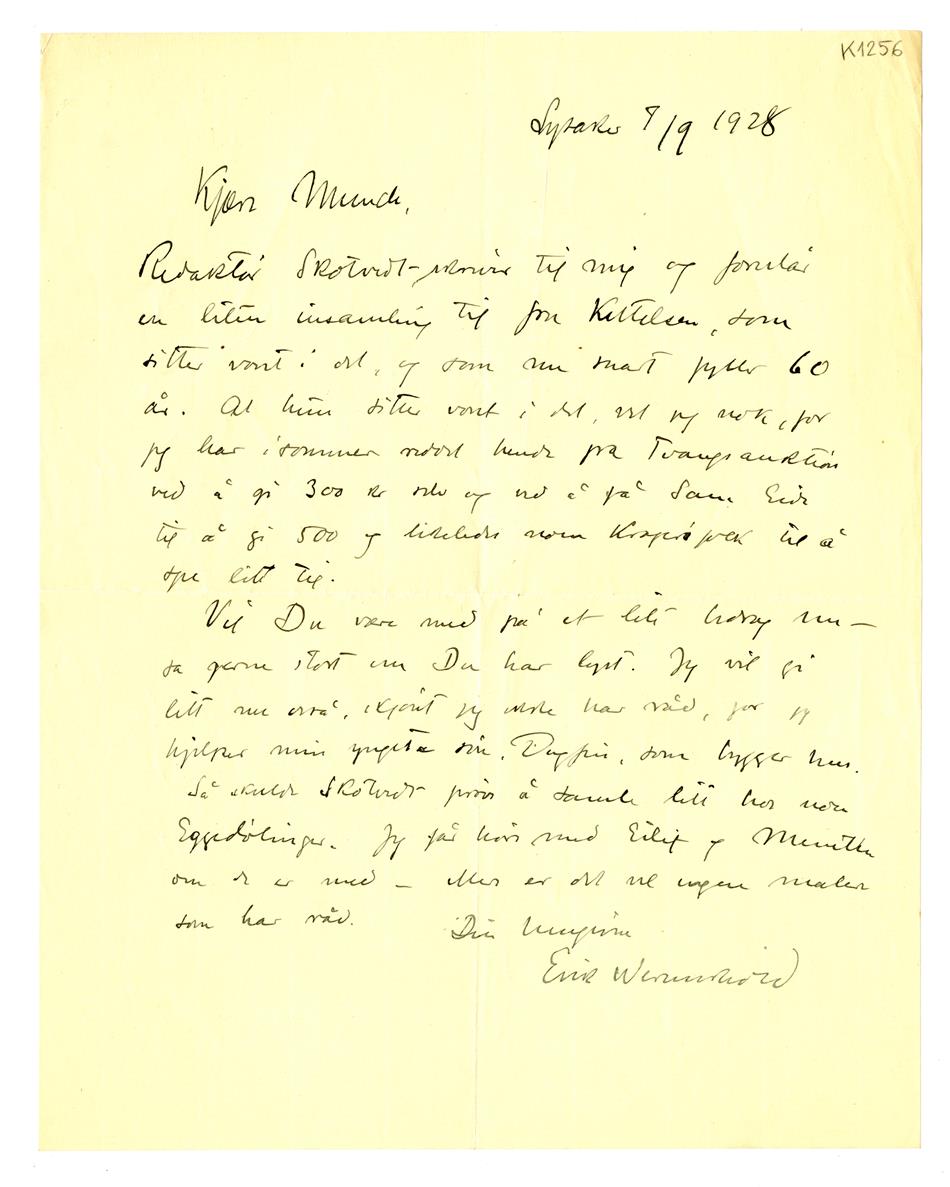 K1256
Lysaker 8/9 1928
Kjære Munch,
Redaktør Skotvedt skriver til mig og foreslår
en liten insamling til fru Kittelsen, som
sitter vont i det, og som nu snart fyller 60
år. At hun sitter vont i det, vet jeg nok, for
jeg har i sommer reddet hende fra Tvangsauktion
ved å gi 300 kr selv og ved å få Sam Eide
til å gi 500 og likeledes noen Kragerøfolk til å
spe litt til.
Vil Du være med på et lite bidrag nu –
sa gerne stort om Du har lyst. Jeg vil gi
litt nu også, skjønt jeg ikke har råd, for jeg
hjelper min yngste søn, Dagfin, som bygger hus.
Så skulde Skotvedt prøve å samle litt hos noen
Eggedølinger. Jeg får høre med Eilif og Munthe
om de er med – Mer er det vel ingen malere
som har råd.
Din hengivne
Erik Werenskiold